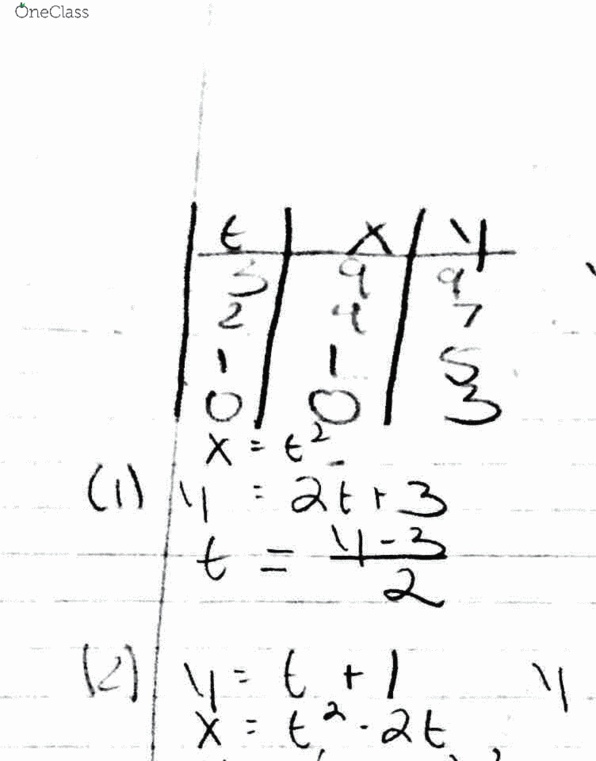 OneClass
t x y
3 9 9
2 4 7
1 1 5
0 0 3
x = t²
(1) y = 2t + 3
t = y - 3 / 2
(2) y = t + 1 y
x = t² - 2t